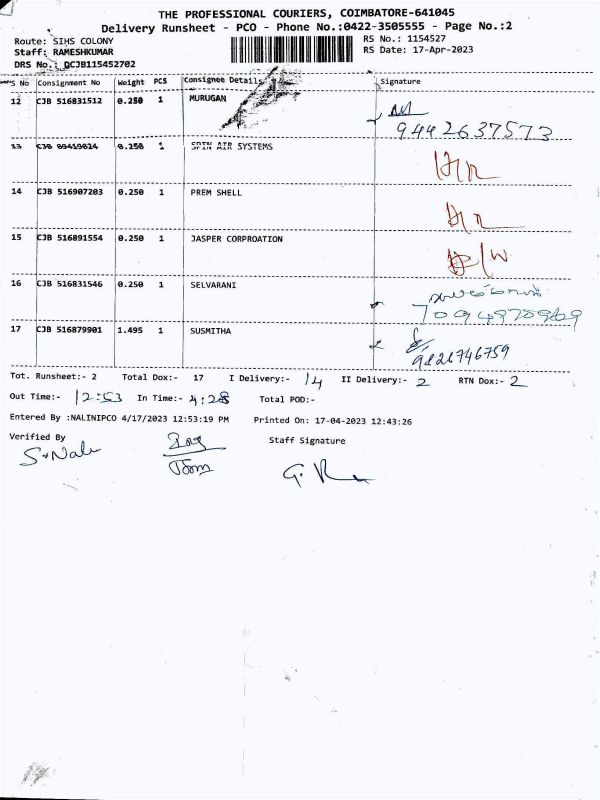 THE PROFESSIONAL COURIERS, COIMBATORE-641045
Delivery Runsheet - PCO - Phone No.:0422-3505555 - Page No.:2
Route: SIHS COLONY RS No.: 1154527
Staff: RAMESHKUMAR RS Date: 17-Apr-2023
DRS No.: DCJB115452702
S No Consignment No Weight PCS Consignee Details Signature
12 CJB 516831512 0.250 1 MURUGAN
9442637573
13 CJB 0.250 1 SPIN AIR SYSTEMS
14 CJB 516907203 0.250 1 PREM SHELL
15 CJB 516891554 0.250 1 JASPER CORPROATION
16 CJB 516831546 0.250 1 SELVARANI
17 CJB 516879901 1.495 1 SUSMITHA
Tot. Runsheet:- 2 Total Dox:- 17 I Delivery:- 14 II Delivery:- 2 RTN Dox:- 2
Out Time:- 12:53 In Time:- 4:28 Total POD:-
Entered By :NALINIPCO 4/17/2023 12:53:19 PM Printed On: 17-04-2023 12:43:26
Verified By Staff Signature